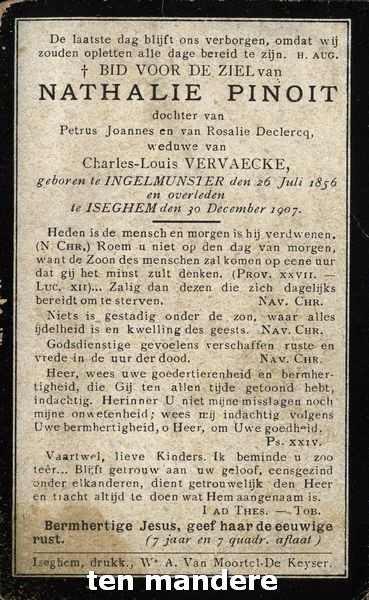 De laatste dag blijft ons verborgen, omdat wij
zouden opletten alle dage bereid te zijn. H. AUG.
† BID VOOR DE ZIEL van
NATHALIE PINOIT
dochter van
Petrus Joannes en van Rosalie Declercq,
weduwe van
Charles-Louis VERVAECKE,
geboren te INGELMUNSTER den 26 Juli 1856
en overleden
te ISEGHEM den 30 December 1907.
Heden is de mensch en morgen is hij verdwenen.
(N. CHR.) Roem u niet op den dag van morgen,
want de Zoon des menschen zal komen op eene uur
dat gij het minst zult denken. (PROV. XXVII. —
LUC. XII)... Zalig dan dezen die zich dagelijks
bereidt om te sterven. NAV. CHR.
Niets is gestadig onder de zon, waar alles
ijdelheid is en kwelling des geests. NAV. CHR.
Godsdienstige gevoelens verschaffen ruste en
vrede in de uur der dood. NAV. CHR.
Heer, wees uwe goedertierenheid en bermher-
tigheid, die Gij ten allen tijde getoond hebt,
indachtig. Herinner U niet mijne misslagen noch
mijne onwetenheid; wees mij indachtig volgens
Uwe bermhertigheid, o Heer, om Uwe goedheid.
Ps. XXIV.
Vaartwel, lieve Kinders. Ik beminde u zoo
teêr... Blijft getrouw aan uw geloof, eensgezind
onder elkanderen, dient getrouwelijk den Heer
en tracht altijd te doen wat Hem aangenaam is.
I AD THES. — TOB.
Bermhertige Jesus, geef haar de eeuwige
rust. (7 jaar en 7 quadr. aflaat)
Iseghem, drukk., We A. Van Moortel-De Keyser.
ten mandere